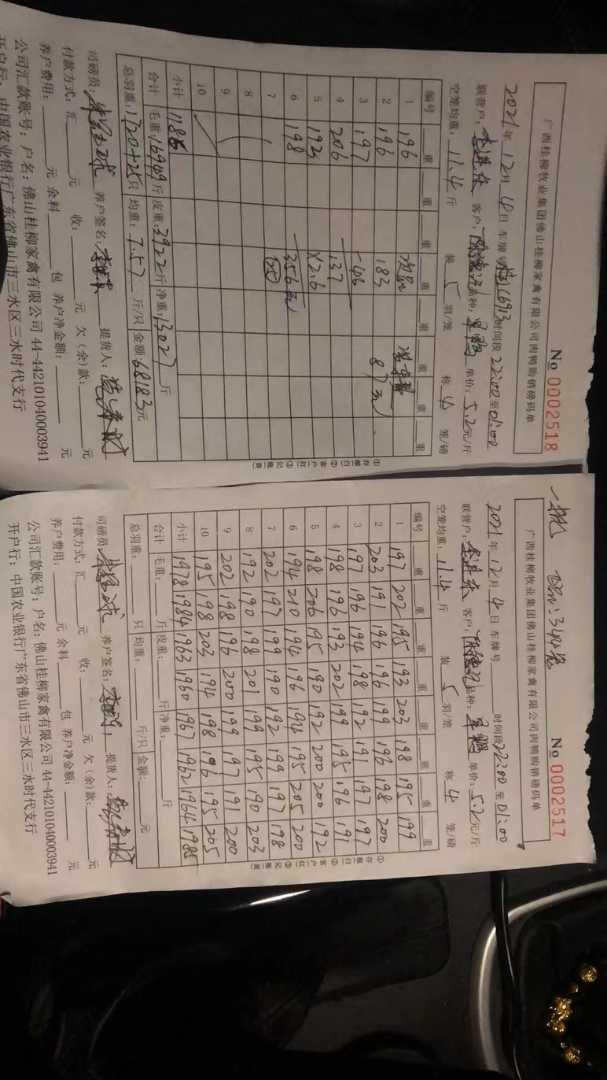 广西桂柳牧业集团佛山桂柳家禽有限公司肉鸭购销磅码单
No 0002518
2021年 12月 4日 车牌号 时间段 22:00 至 01:00
联营户: 客户: 品种: 单价: 5.2元/斤
空笼均重: 11.4 斤 装 5 羽/笼 称 4 笼/磅
编号 重 重 重 重 重
1 196
2 196 183 87元
3 197 -46
4 206 137
5 192 X2.6
6 198 356元
7 1
8
9
10
小计 1186
合计 毛重: 16949 斤 皮重: 3922 斤 净重: 13027 斤
总羽重: 1720+25 只 均重: 7.57 斤/只 金额: 68183 元
司磅员: 养户签名: 提货人:
付款方式: 汇 元 收: 元 欠(余)款: 元
养户费用: 元 余料 包 养户净金额: 元
公司汇款账号: 户名: 佛山桂柳家禽有限公司 44-442101040003941
开户行: 中国农业银行广东省佛山市三水区三水时代支行
①存根(白) ②客户(红) ③记账(黄)
340笼
广西桂柳牧业集团佛山桂柳家禽有限公司肉鸭购销磅码单
No 0002517
2021年 12月 4日 车牌号 时间段 22:00 至 01:00
联营户: 客户: 品种: 单价: 5.2元/斤
空笼均重: 11.4 斤 装 5 羽/笼 称 4 笼/磅
编号 重 重 重 重 重 重 重 重
1 197 202 195 193 203 198 195 199
2 203 191 196 196 199 196 198 200
3 197 196 194 198 192 191 197 197
4 198 196 193 202 199 195 196 191
5 198 206 195 190 192 200 200 192
6 194 210 194 196 194 195 205 200
7 202 197 199 190 192 199 197 198
8 192 190 198 201 199 195 190 203
9 202 198 196 200 199 197 191 200
10 195 198 203 194 198 196 195 205
小计 1978 1984 1963 1960 1967 1962 1964 1985
合计 毛重: 斤 皮重: 斤 净重: 斤
总羽重: 只 均重: 斤/只 金额: 元
司磅员: 养户签名: 提货人:
付款方式: 汇 元 收: 元 欠(余)款: 元
养户费用: 元 余料 包 养户净金额: 元
公司汇款账号: 户名: 佛山桂柳家禽有限公司 44-442101040003941
开户行: 中国农业银行广东省佛山市三水区三水时代支行
①存根(白) ②客户(红) ③记账(黄)